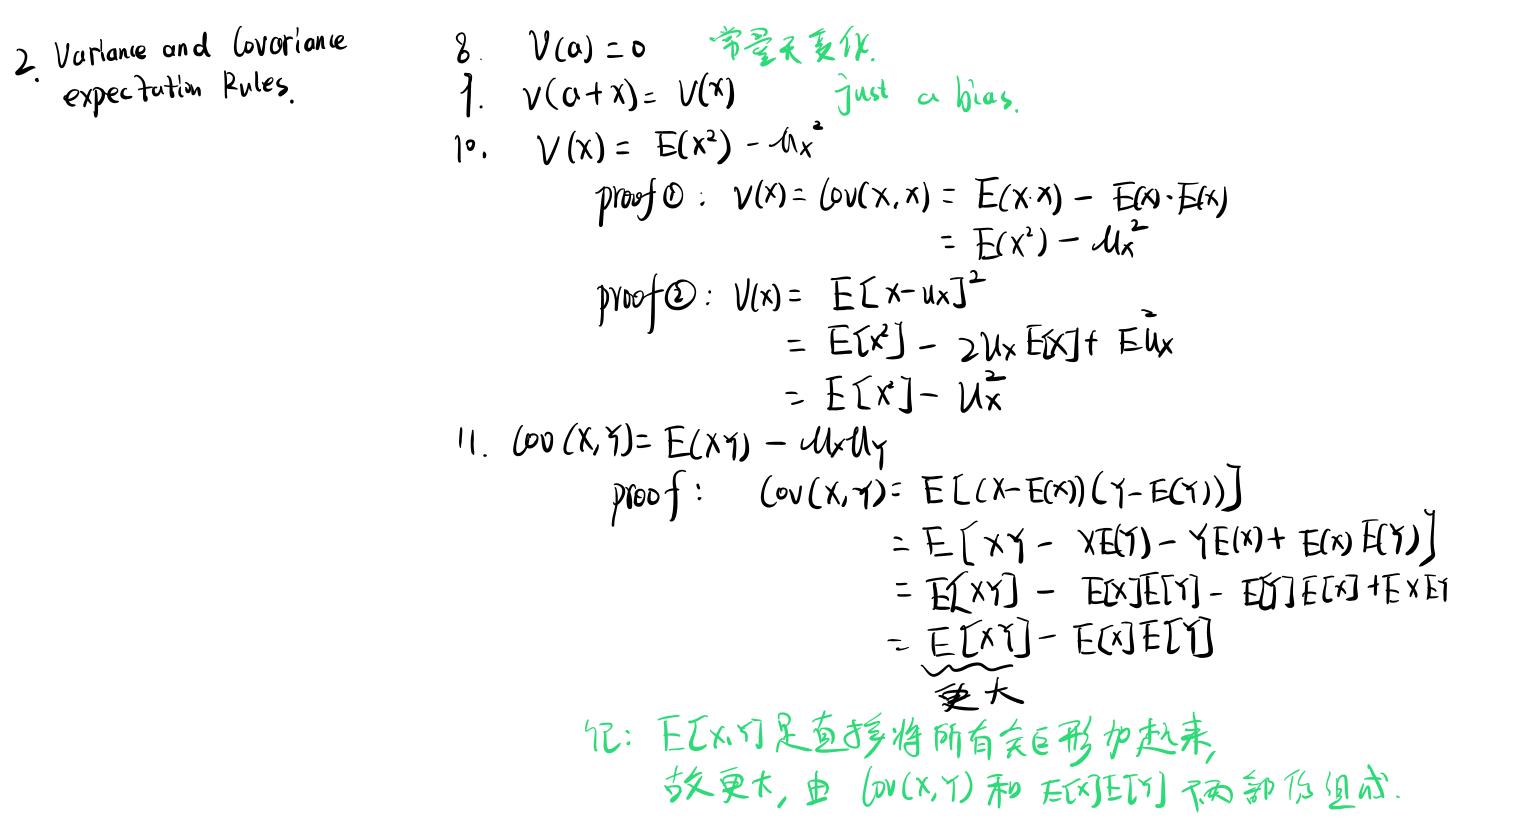 2. Variance and Covariance
expectation Rules.
8. V(a) = 0 常量无变化.
9. V(a+x) = V(x) just a bias.
10. V(x) = E(x²) - μx²
proof①: V(x) = Cov(x,x) = E(x·x) - E(x)·E(x)
= E(x²) - μx²
proof②: V(x) = E[x-μx]²
= E[x²] - 2μx E[x] + Eμx²
= E[x²] - μx²
11. Cov(X,Y) = E(XY) - μxμy
proof: Cov(X,Y) = E[(X-E(X))(Y-E(Y))]
= E[XY - XE(Y) - YE(X) + E(X)E(Y)]
= E[XY] - E[X]E[Y] - E[Y]E[X] + EXEY
= E[XY] - E[X]E[Y]
更大
记: E[X,Y]是直接将所有矩形加起来,
故更大, 由 Cov(X,Y) 和 E[X]E[Y] 两部份组成.